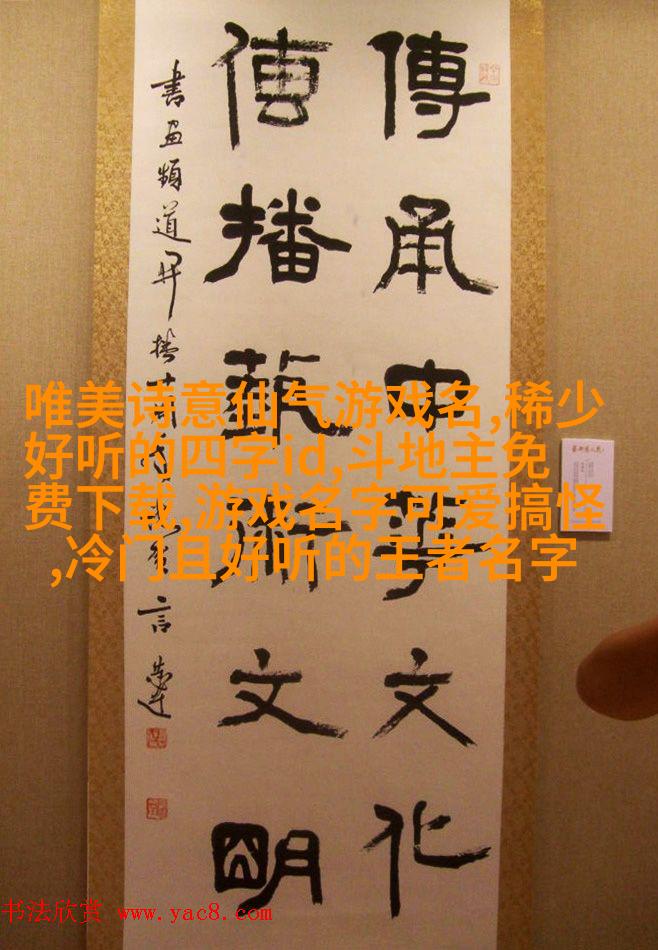 傳承中華文化
傳播藝術文明
書画頻道開播
言恭達
唯美诗意仙气游戏名,稀少
好听的四字id,斗地主免
费下载,游戏名字可爱搞怪
,冷门且好听的王者名字
书法欣赏 www.yac8.com